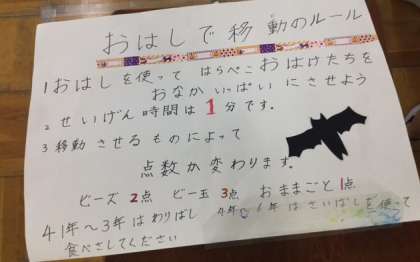 おはしで移動のルール
1 おはしを使って はらぺこおばけたちを
おなかいっぱいにさせよう
2 せいげん時間は1分です。
3 移動させるものによって
点数が変わります。
ビーズ 2点 ビー玉 3点 おままごと 1点
4 1年〜3年はわりばし 4年〜6年はさいばしを使って
食べさしてください